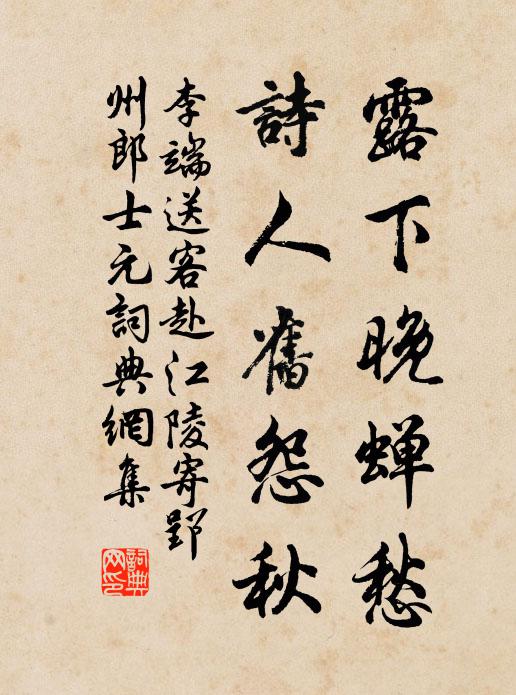 露下晚蝉愁
詩人舊怨秋
李端送客赴江陵寄郢
州郎士元詞典網集
詞典网印